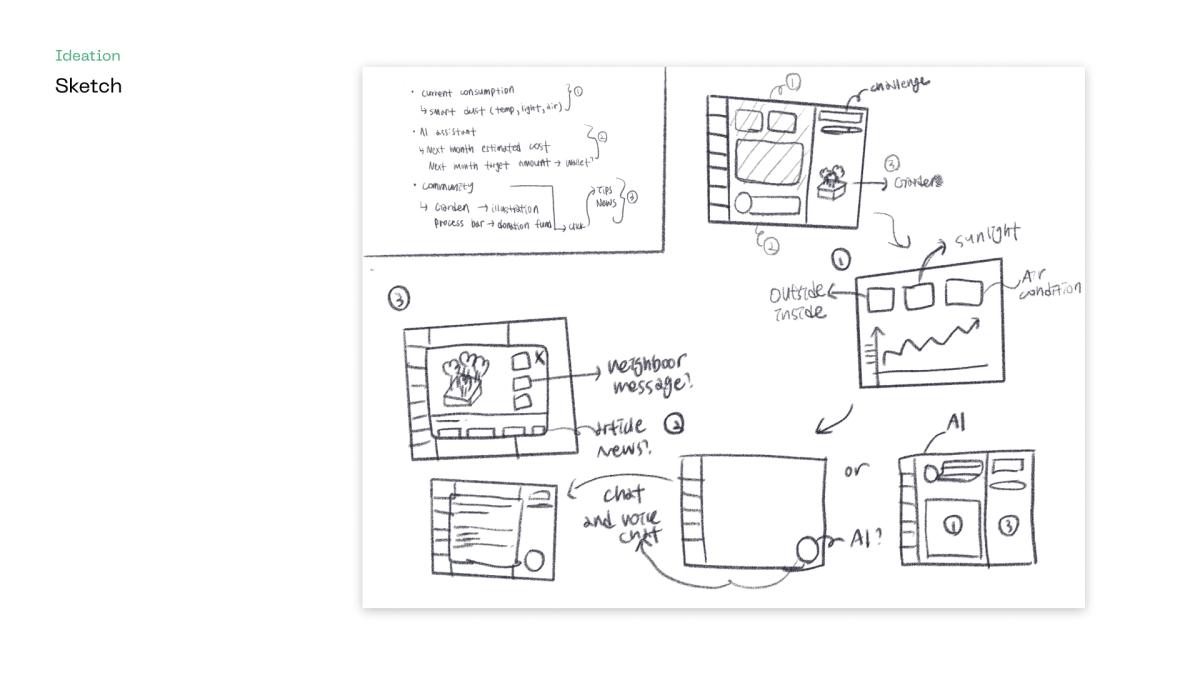 Ideation
Sketch
• current consumption
↳ smart dust (temp, light, air) } ①
• AI assistant
↳ Next month estimated cost
Next month target amount → wallet? } ②
• community
↳ Garden → illustration
process bar → donation fund → click
→ Tips
News } ③
①
challenge
③
→ Garden
②
①
sunlight
outside
inside
Air
condition
③
neighboor
message?
article
News?
②
chat
and voice
chat
AI?
or
AI
①
③